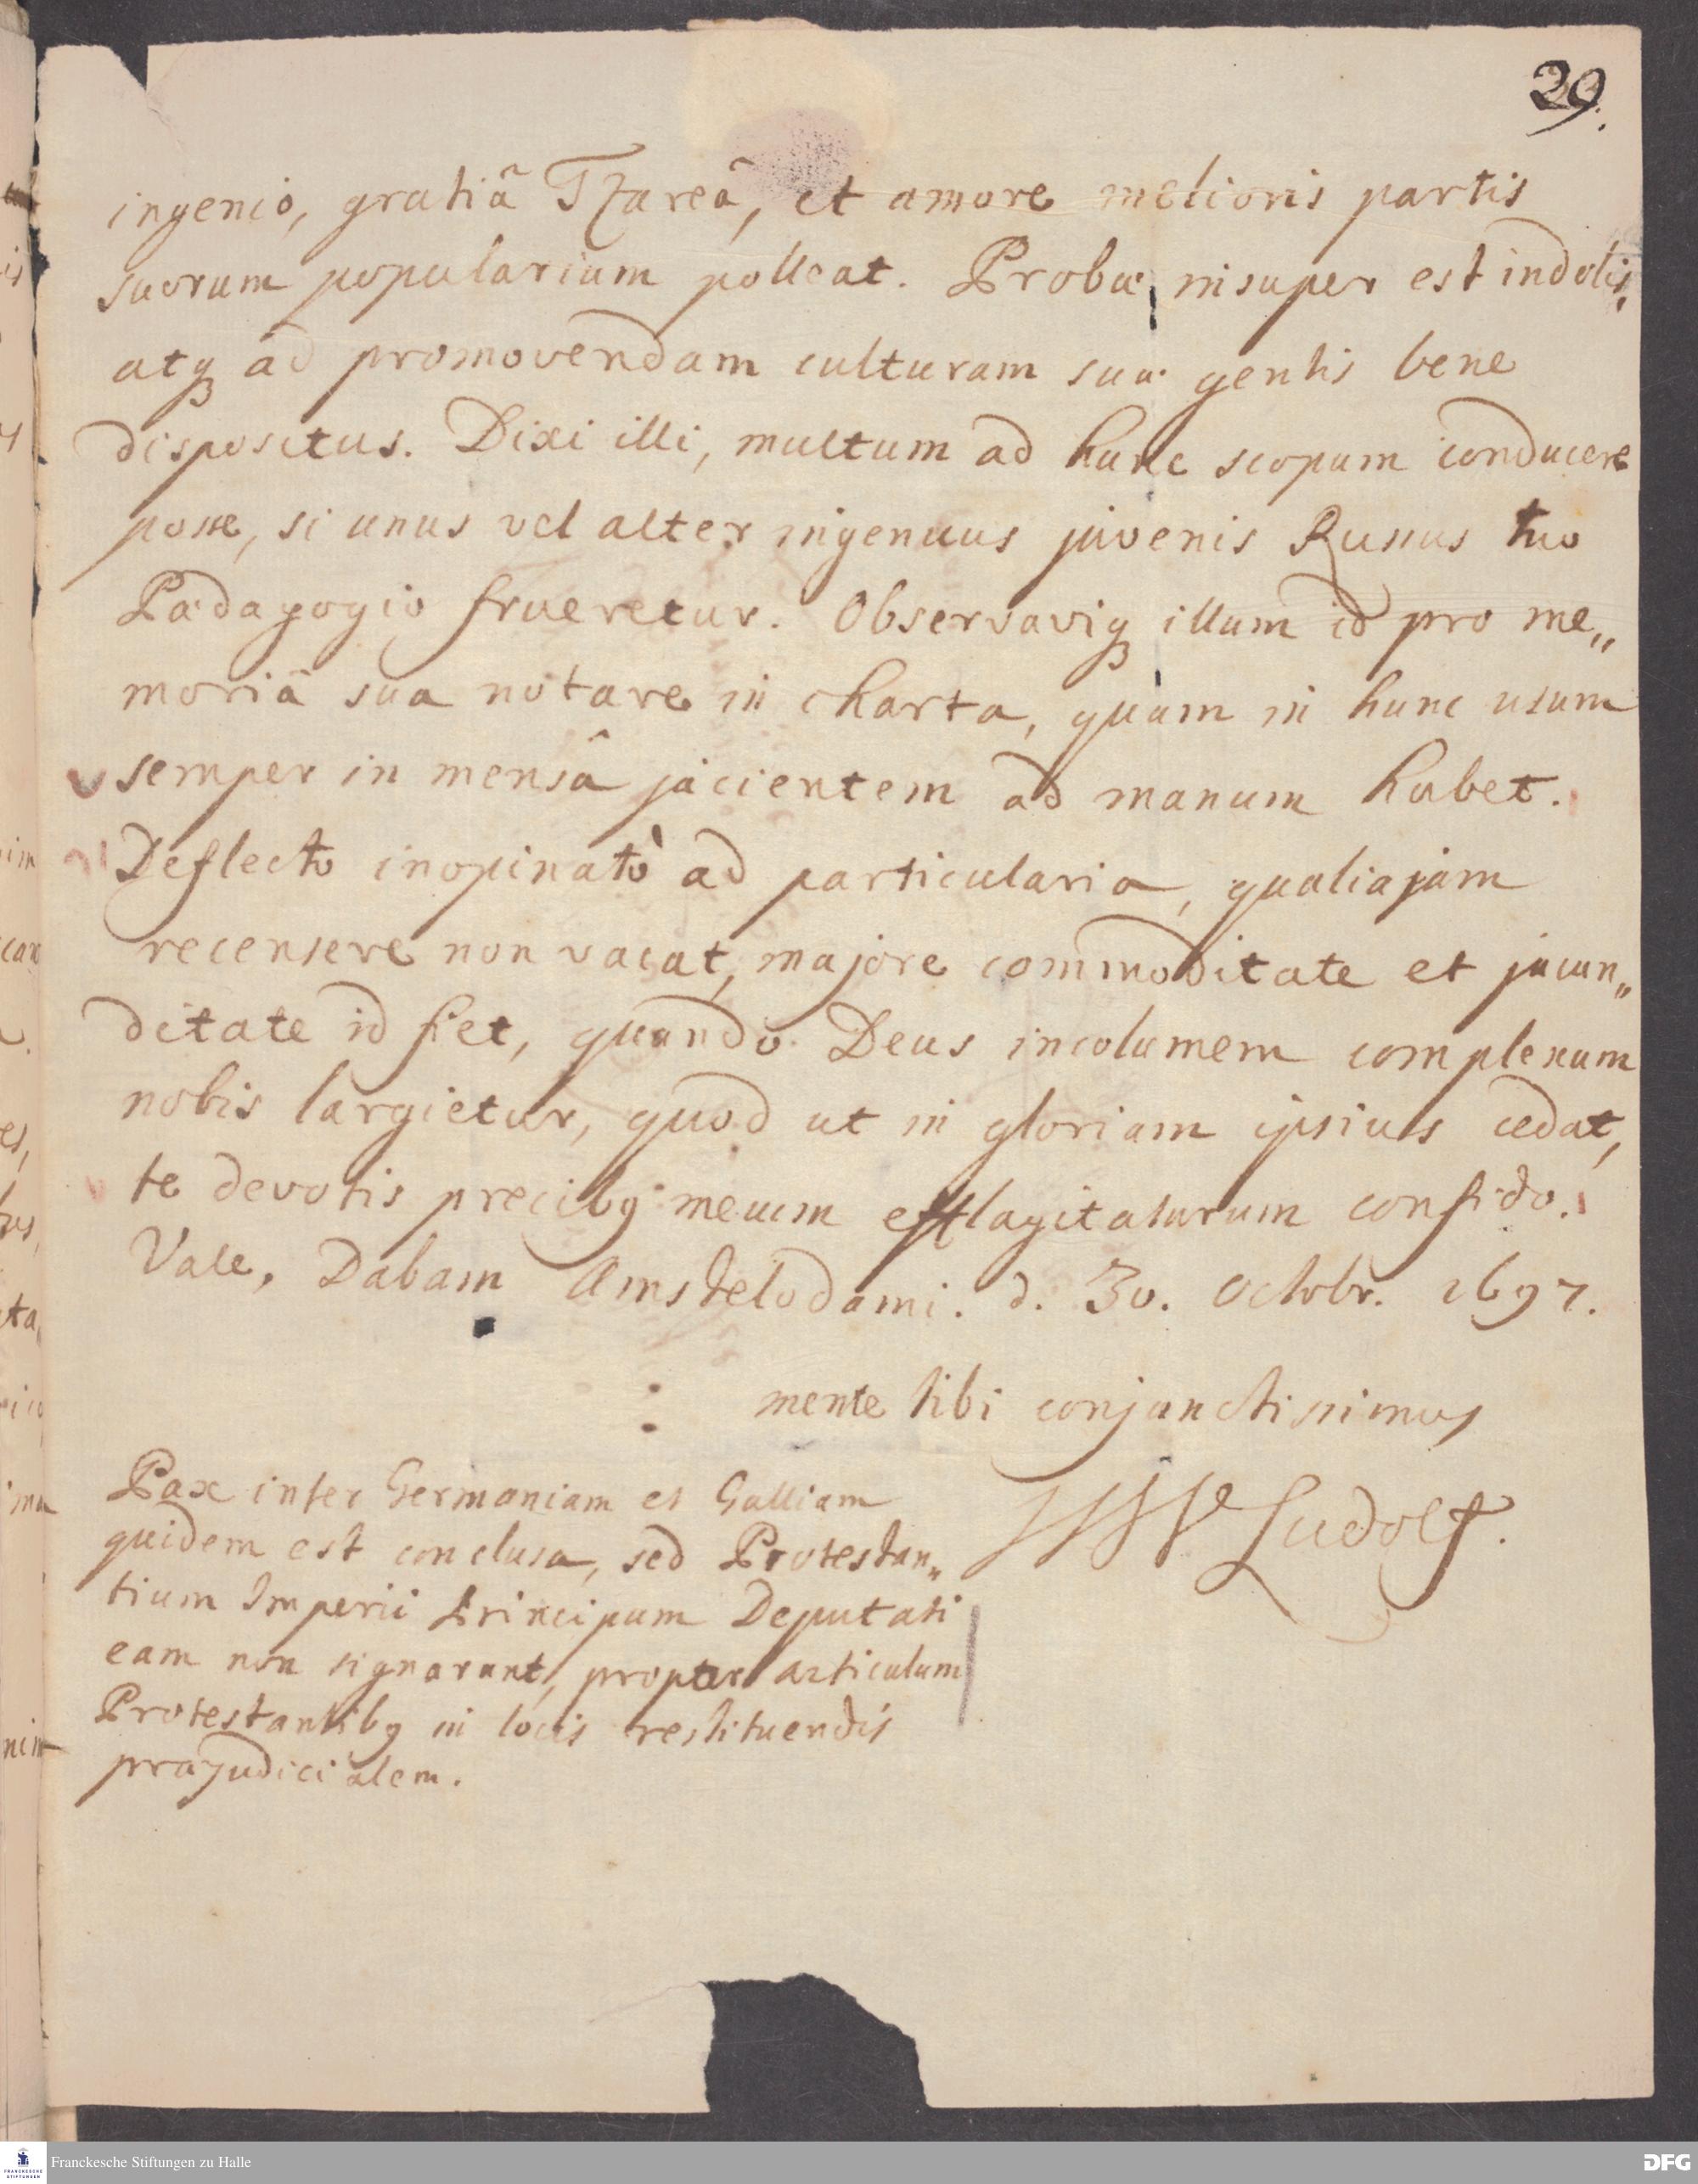 29.
ingenio, gratiâ Tzareâ, et amore melioris partis
suorum popularium polleat. Probæ insuper est indolis,
atq ad promovendam culturam suæ gentis bene
dispositus. Dixi illi, multum ad hunc scopum conducere
posse, si unus vel alter ingenuus juvenis Russus tuo
Pædagogio frueretur. Observaviq illum id pro me„
moriâ sua notare in charta, quam in hunc usum
semper in mensâ jacientem ad manum habet.
Deflecto inopinatò ad particularia, qualia jam
recensere non vacat, majore commoditate et jucun„
ditate id fiet, quando Deus incolumem complexum
nobis largietur, quod ut in gloriam ipsius cedat,
te devotis precibq mecum efflagitaturum confido.
Vale. Dabam Amstelodami. d. 30. Octobr. 1697.
mente tibi conjunctissimus
HWLudolf.
Pax inter Germaniam et Galliam
quidem est conclusa, sed Protestan„
tium Imperii Principum Deputati
eam non signarunt, propter articulum
Protestantibq in locis restituendis
præjudicialem.
Franckesche Stiftungen zu Halle
FRANCKESCHE
STIFTUNGEN
DFG